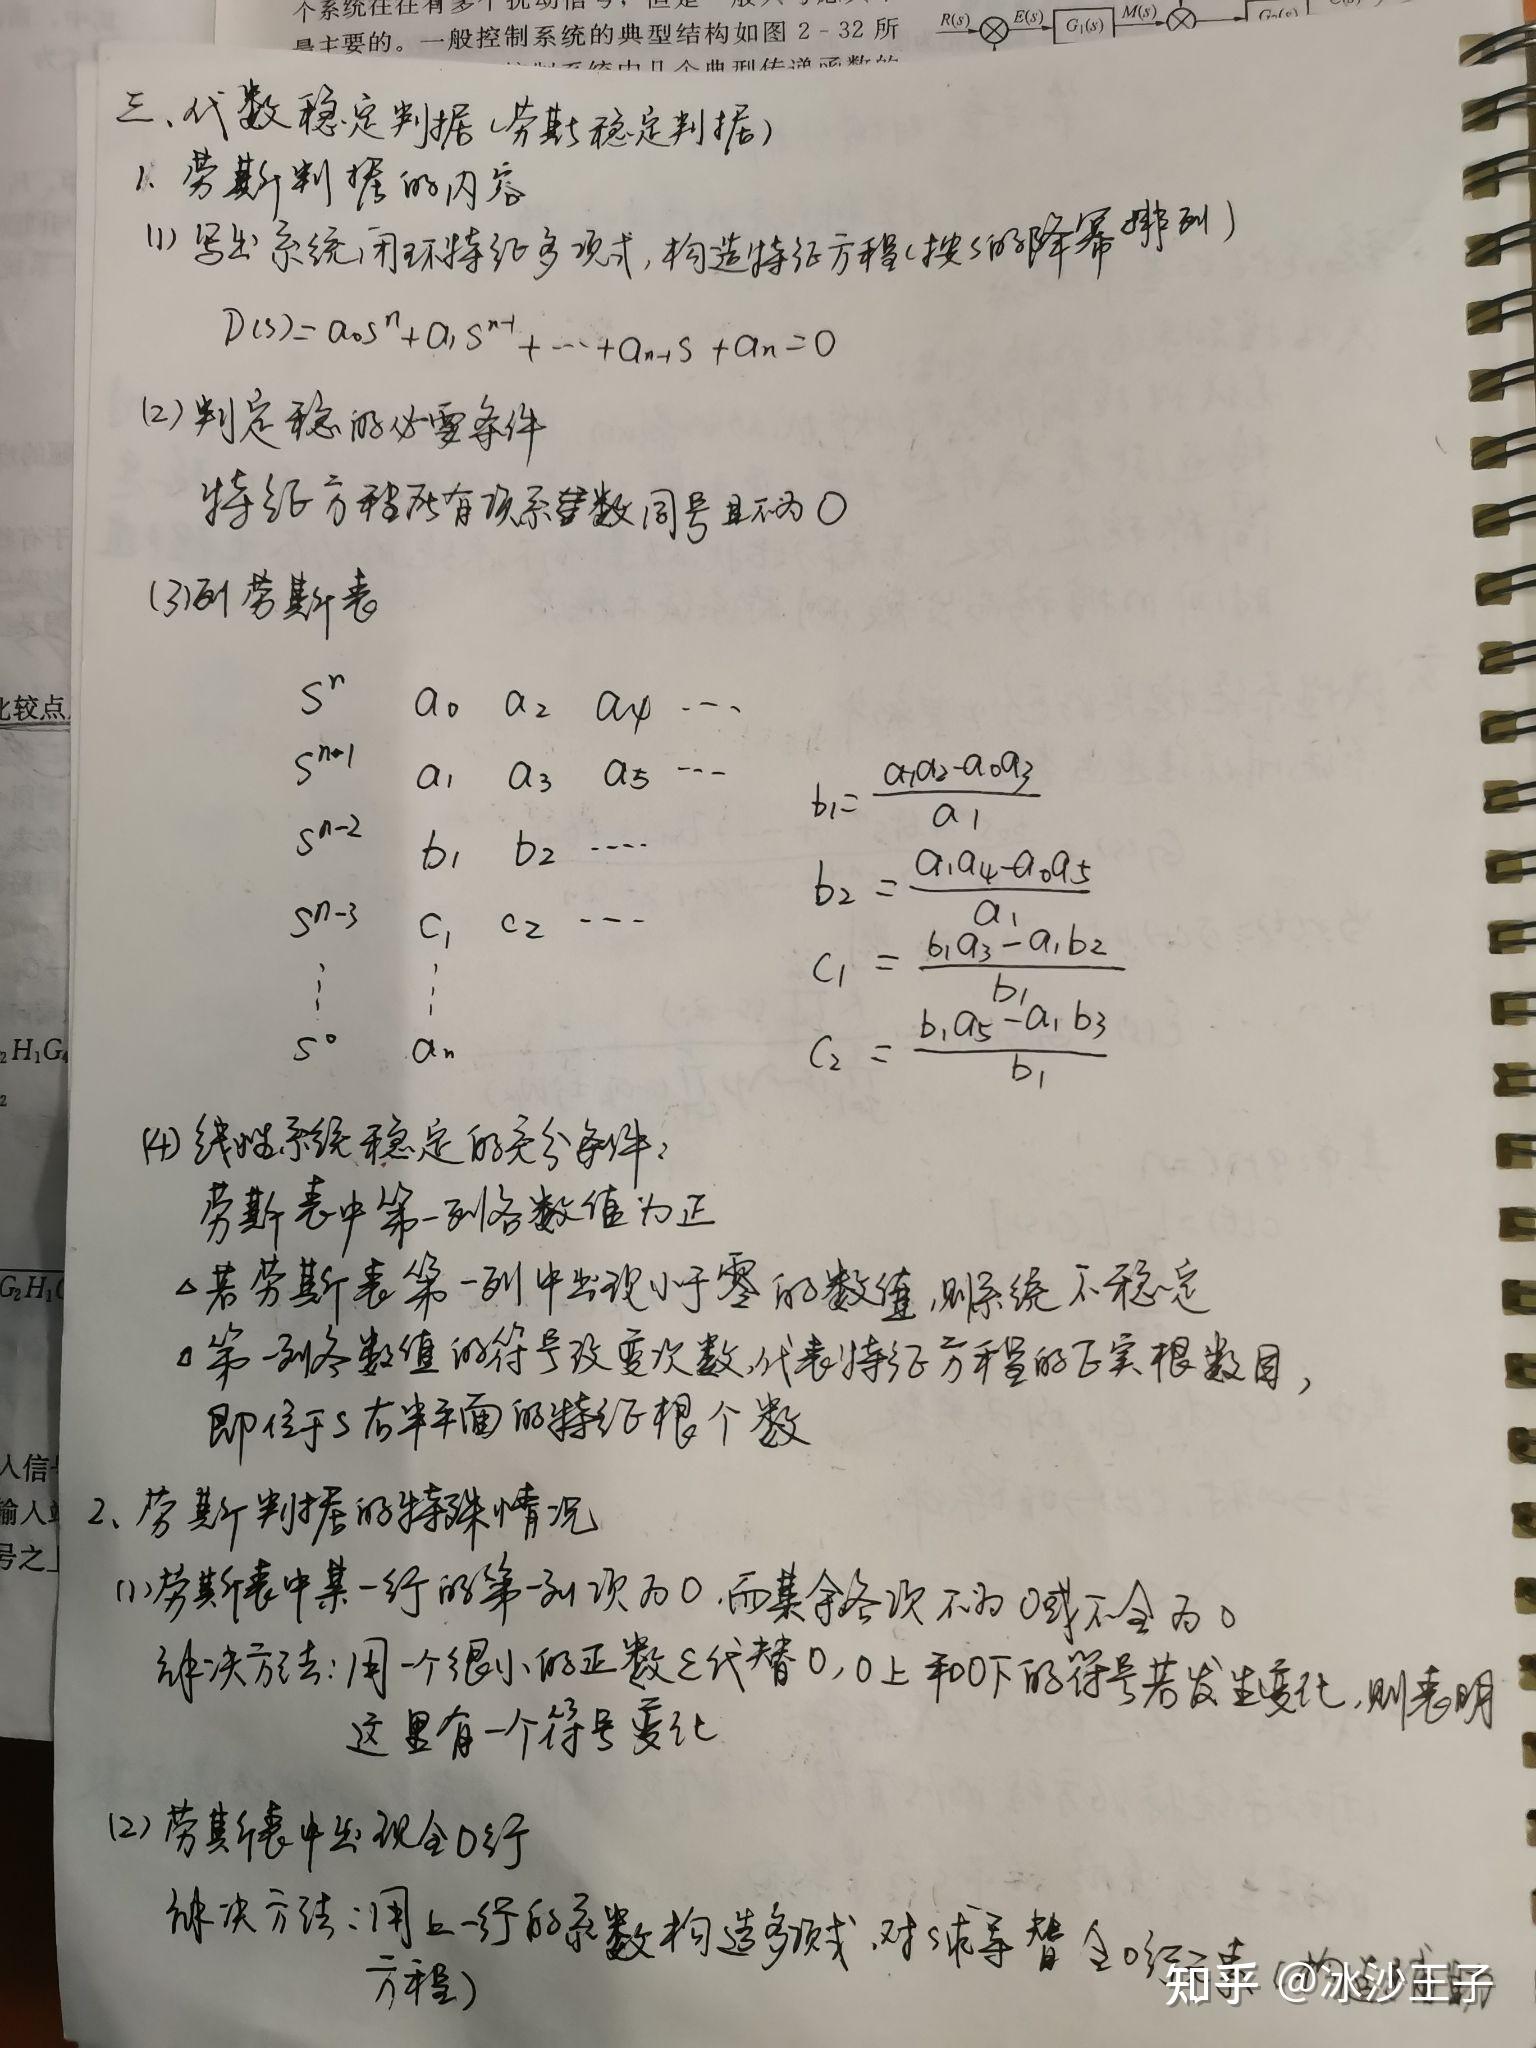 个系统往往有多个扰动信号，但是一般只考虑其中
是主要的。一般控制系统的典型结构如图 2-32 所
R(s) E(s) G₁(s) M(s)
三、代数稳定判据（劳斯稳定判据）
1、劳斯判据的内容
(1) 写出系统闭环特征多项式，构造特征方程（按s的降幂排列）
D(s)=a₀sⁿ+a₁sⁿ⁻¹+⋯+aₙ₋₁s+aₙ=0
(2) 判定稳的必要条件
特征方程所有项系数同号且不为0
(3) 列劳斯表
sⁿ a₀ a₂ a₄ ⋯
sⁿ⁻¹ a₁ a₃ a₅ ⋯
b₁=(a₁a₂-a₀a₃)/a₁
sⁿ⁻² b₁ b₂ ⋯
b₂=(a₁a₄-a₀a₅)/a₁
sⁿ⁻³ c₁ c₂ ⋯
c₁=(b₁a₃-a₁b₂)/b₁
⋮ ⋮
s⁰ aₙ
c₂=(b₁a₅-a₁b₃)/b₁
(4) 线性系统稳定的充分条件：
劳斯表中第一列各数值为正
△若劳斯表第一列中出现小于零的数值，则系统不稳定
△第一列各数值的符号改变次数，代表特征方程的正实根数目，
即位于s右半平面的特征根个数
2、劳斯判据的特殊情况
(1) 劳斯表中某一行的第一列项为0，而其余各项不为0或不全为0
解决方法：用一个很小的正数ε代替0，0上和0下的符号若发生变化，则表明
这里有一个符号变化
(2) 劳斯表中出现全0行
解决方法：用上一行的系数构造多项式，对s求导替全0行
方程）
知乎 @冰沙王子
比较点
₂H₁G₄
G₂H₁
人信号
输入
号之